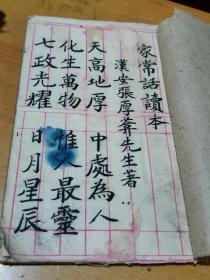 家常話讀本
漢安張厚菴先生著
天高地厚 中處為人
化生萬物 惟人最靈
七政光耀 日月星辰